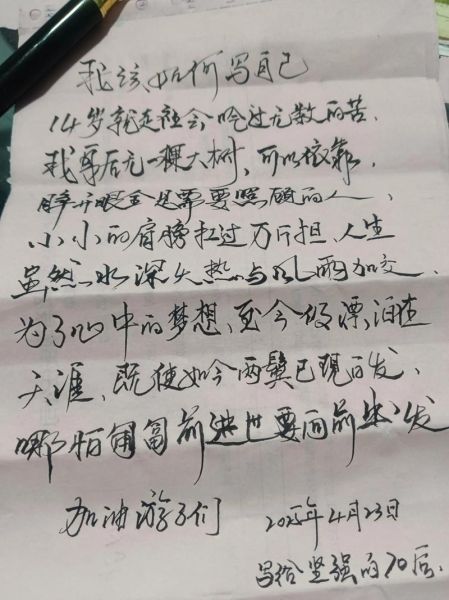 我该如何写自己
14岁就走社会吃过无数的苦.
我身后无一棵大树、可以依靠,
睁开眼全是需要照顾的人、
小小的肩膀扛过万斤担、人生
虽然水深火热与风雨加交、
为了心中的梦想、至今仍漂泊在
天涯、既使如今两鬓已现白发、
哪怕匍匐前进也要向前出发
加油游子们 2025年4月23日
写给坚强的70后.